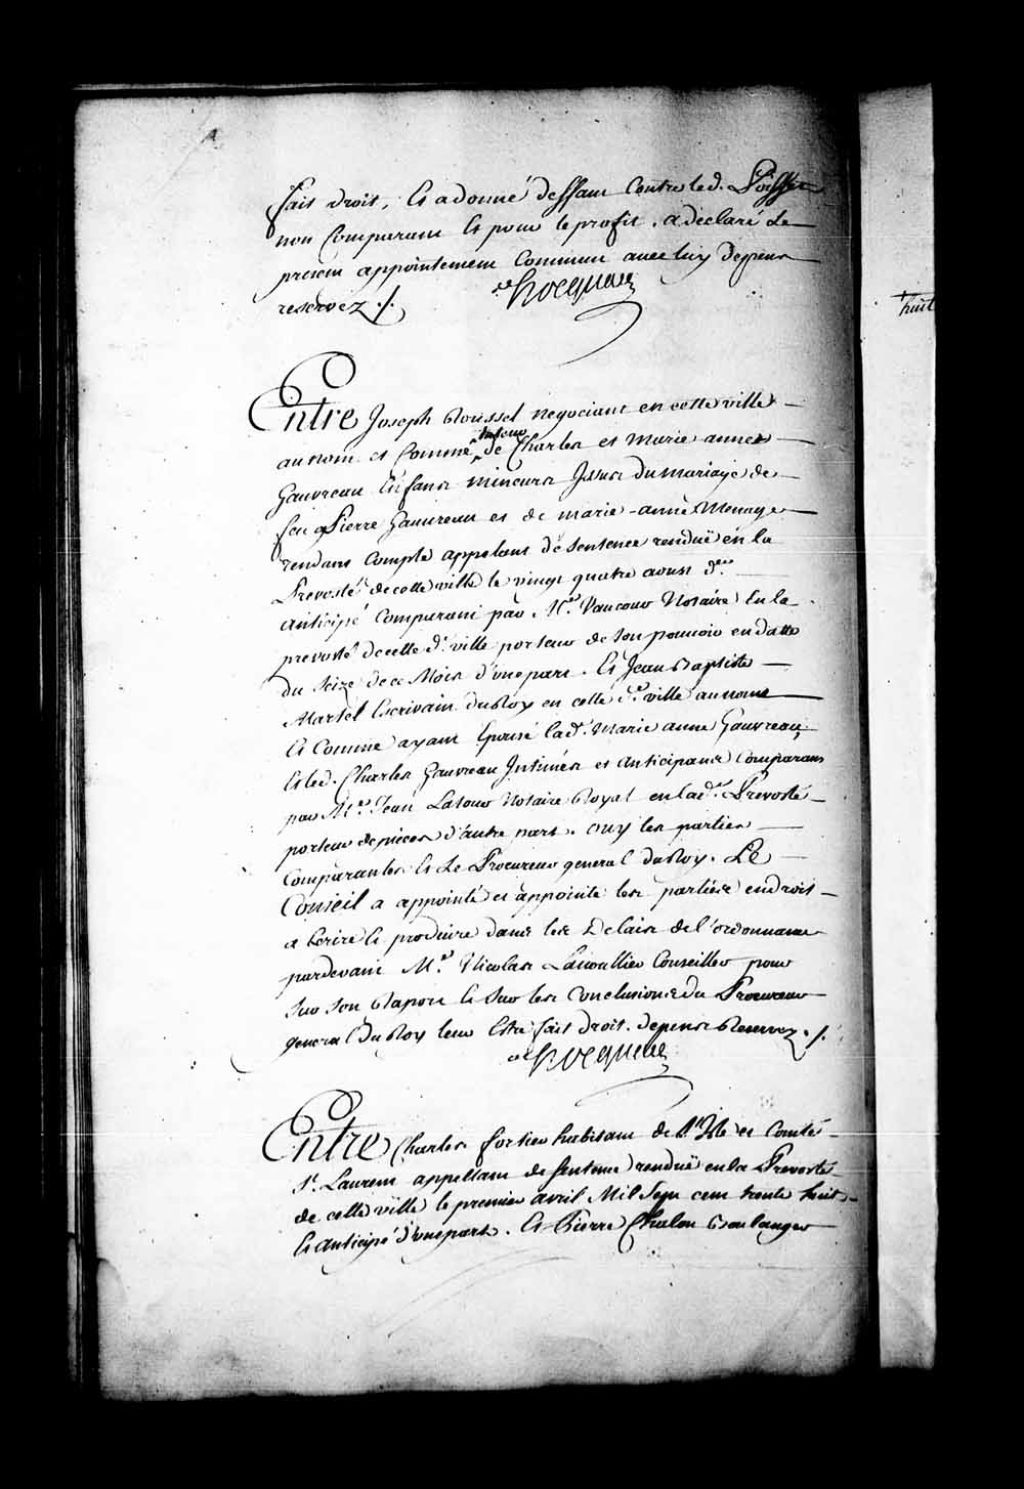 fait droit, Et a donné deffaut Contre led. Poisset
non Comparant Et pour le profit, a declaré Le
present appointement Commun avec luy depens
reservez ./.
Hocquart
Entre Joseph Roussel negociant en cette ville
au nom et Comme tuteur de Charles et Marie anne
Gauvreau Enfans mineurs Issus du mariage de
feu Pierre Gauvreau et de marie-anne Menage
rendant Compte appelant de Sentence renduë en la
Prevosté de cette ville le vingt quatre aoust d.er
anticipé Comparant par M.e Vancour Notaire En la
prevosté de cette d. ville porteur de Son pouvoir en datte
du Seize de ce Mois d'une part. Et Jean Baptiste
Martel Escrivain du Roy en cette d.e ville au nom
Et Comme ayant Epousé lad. Marie anne Gauvreau
Et led. Charles Gauvreau Intimés et anticipans Comparans
par M.e Jean Latour Notaire Royal en lad. Prevosté
porteur de pieces d'autre part. ouy les parties
Comparantes Et Le Procureur general du Roy. Le
Conseil a appointé et appointe les parties en droit
a Ecrire Et produire dans les Delais de l'ordonnance
pardevant M.e Nicolas Lanoullier Conseiller pour
Sur Son Raport Et Sur les Conclusions du Procureur
general du Roy leur Estre fait droit. depens Reservez ./.
Hocquart
Entre Charles fortier habitant de l'Isle et Comté
S.t Laurent appellant de Sentence renduë en la Prevosté
de cette ville le premier avril Mil Sept cent trente huit
Et anticipé d'une part. Et Pierre Chalou Boulanger
huit